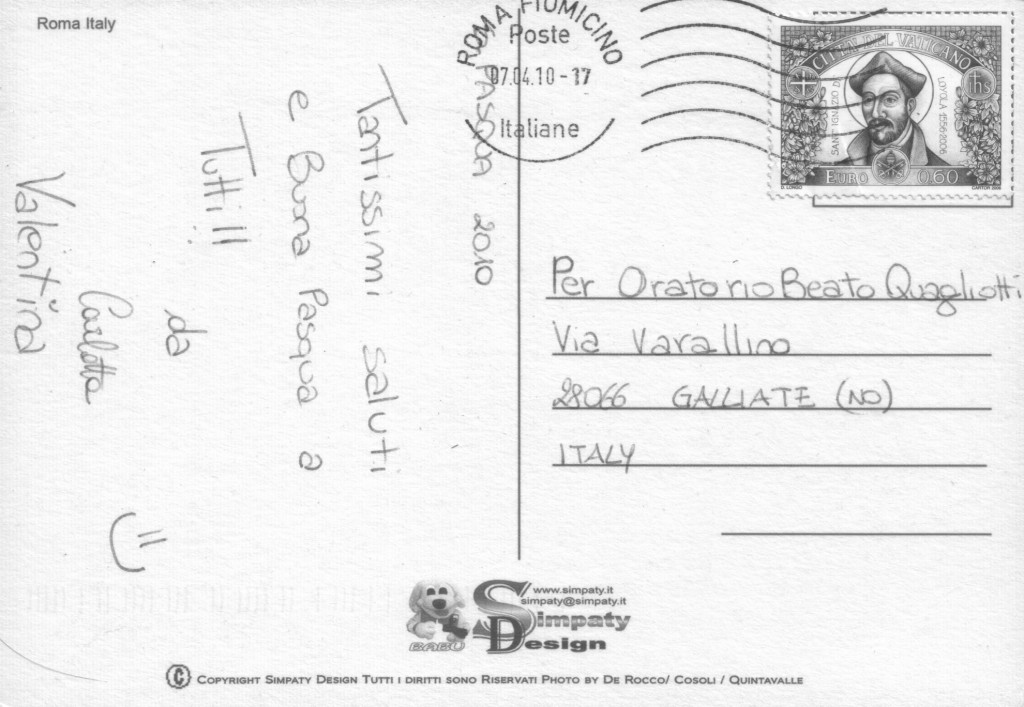 Roma Italy
ROMA FIUMICINO
Poste
07.04.10-17
Italiane
CITTÀ DEL VATICANO
SANT'IGNAZIO DI
LOYOLA 1556-2006
ihs
EURO 0,60
D. LONGO
CARTOR 2006
PASQUA 2010
Tantissimi saluti
e Buona Pasqua a
Tutti!!
da
Carlotta
Valentina
=)
Per Oratorio Beato Quagliotti
Via Varallino
28066 GALLIATE (NO)
ITALY
www.simpaty.it
simpaty@simpaty.it
Simpaty
Design
BABÙ
© COPYRIGHT SIMPATY DESIGN TUTTI I DIRITTI SONO RISERVATI PHOTO BY DE ROCCO/ COSOLI / QUINTAVALLE